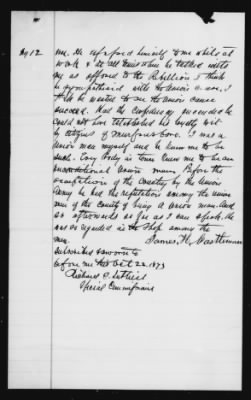 me. He expressed himself to me whilst at
work & at all times when he talked with
me as opposed to the Rebellion I think
he sympathised with the Union cause. I
think he wanted to see the Union cause
succeed. Had the Confederacy succeeded he
could not have established his loyalty
by citizens of Murfreesboro. I was a
Union man myself and he knew me to be
such. Every body in town knew me to be an
unconditional Union man. Before the
occupation of the Country by the Union
Army he had the reputation among the Union
men of the County of being a Union man. And
so afterwards as far as I can speak. He
was so regarded in the Shop among the
men.
James H.
Subscribed & sworn to
before me this Oct 22 1873
Richard
Special Commissioner